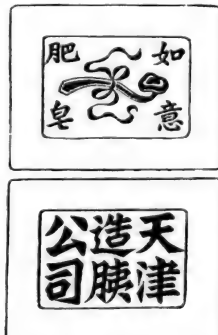 如意
肥皂
天津
造胰
公司